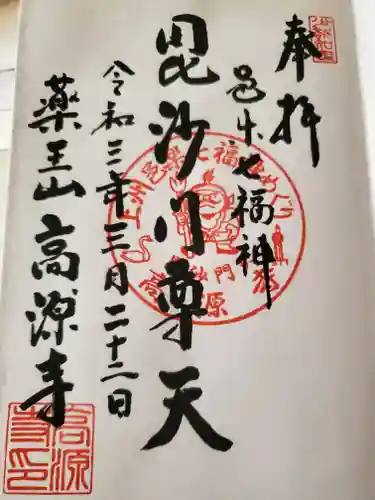 奉拝
邑楽七福神
毘沙門尊天
令和三年三月二十二日
薬王山高源寺
高源寺印